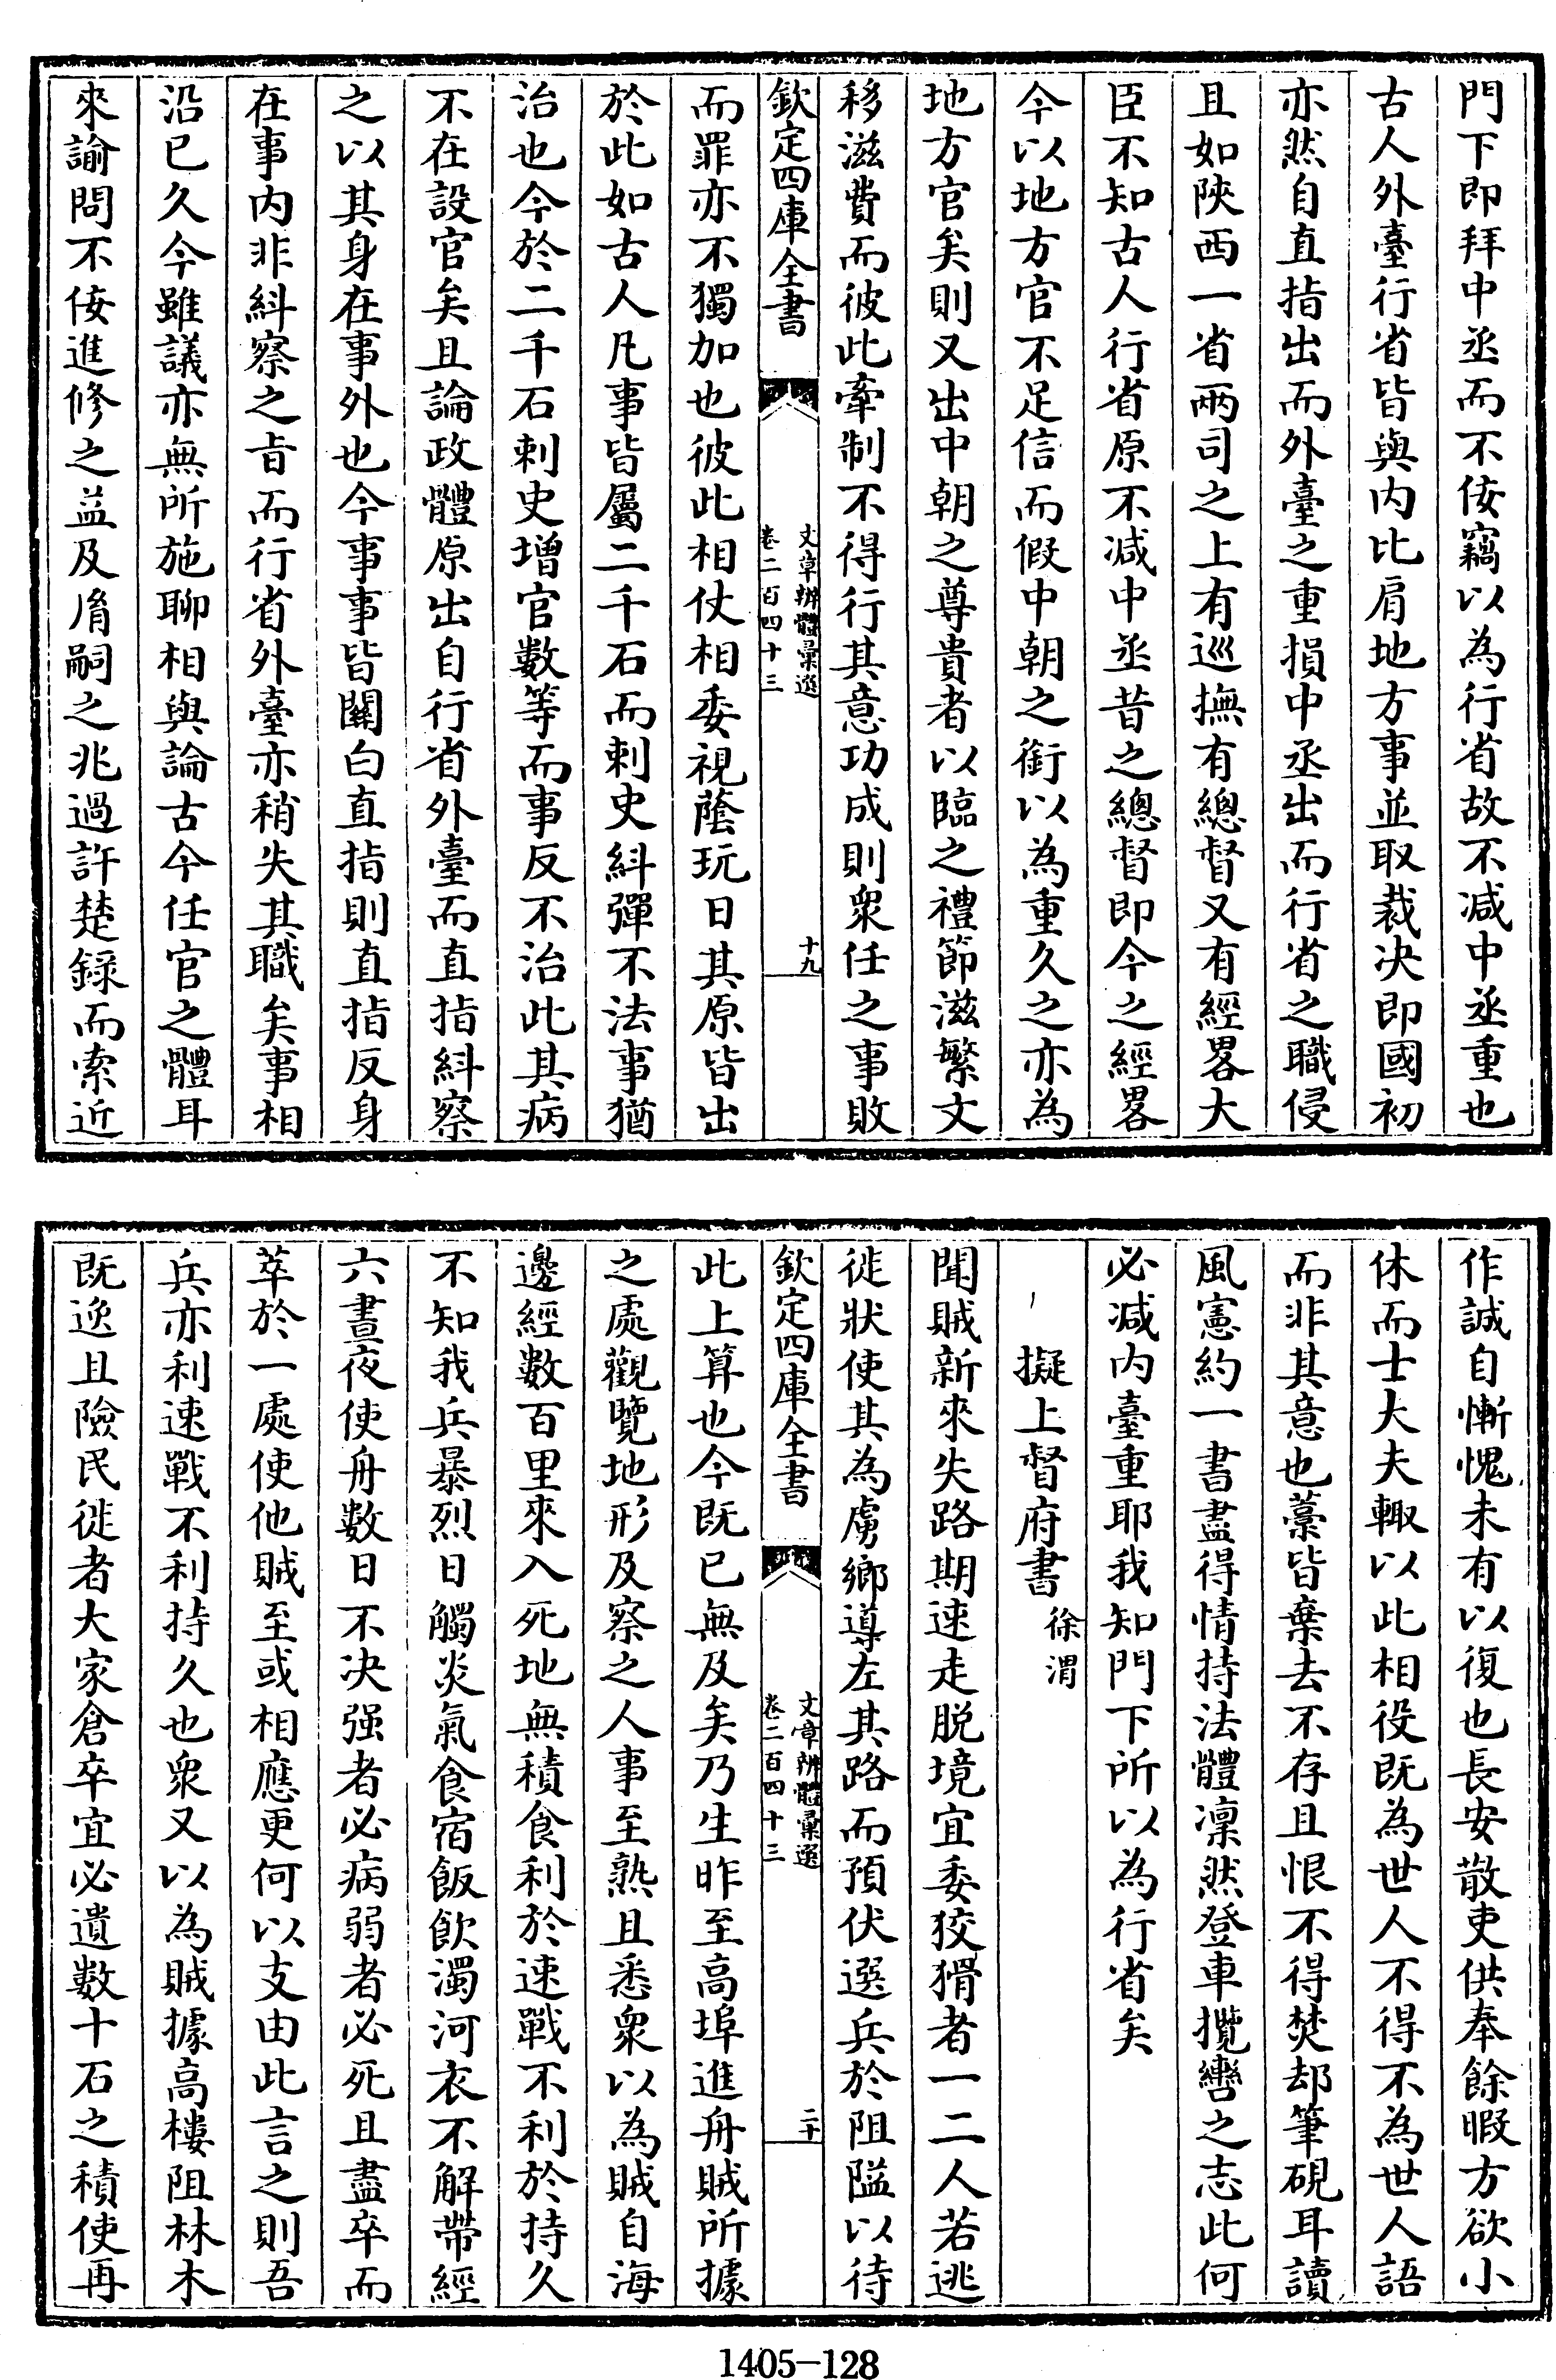 門下即拜中丞而不佞竊以為行省故不減中丞重也
古人外臺行省皆與内比肩地方事並取裁決即國初
亦然自直指出而外臺之重損中丞出而行省之職侵
且如陜西一省兩司之上有巡撫有總督又有經畧大
臣不知古人行省原不減中丞昔之總督即今之經畧
今以地方官不足信而假中朝之銜以為重久之亦為
地方官矣則又出中朝之尊貴者以臨之禮節滋繁文
移滋費而彼此牽制不得行其意功成則衆任之事敗
欽定四庫全書
文章辨體彙選
卷二百四十三
十九
而罪亦不獨加也彼此相仗相委視蔭玩日其原皆出
於此如古人凡事皆屬二千石而刺史糾彈不法事猶
治也今於二千石刺史増官數等而事反不治此其病
不在設官矣且論政體原出自行省外臺而直指糾察
之以其身在事外也今事事皆關白直指則直指反身
在事内非糾察之旨而行省外臺亦稍失其職矣事相
沿已久今雖議亦無所施聊相與論古今任官之體耳
來諭問不佞進修之益及胤嗣之兆過許楚録而索近
作誠自慚愧未有以復也長安散吏供奉餘暇方欲小
休而士大夫輙以此相役既為世人不得不為世人語
而非其意也藁皆棄去不存且恨不得焚却筆硯耳讀
風憲約一書盡得情持法體凜然登車攬轡之志此何
必減内臺重耶我知門下所以為行省矣
擬上督府書 徐渭
聞賊新來失路期速走脱境宜委狡猾者一二人若逃
徙狀使其為虜鄉導左其路而預伏選兵於阻隘以待
欽定四庫全書
文章辨體彙選
卷二百四十三
二十
此上算也今既已無及矣乃生昨至高埠進舟賊所據
之處觀覽地形及察之人事至熟且悉衆以為賊自海
邊經數百里來入死地無積食利於速戰不利於持久
不知我兵暴烈日觸炎氣食宿飯飲濁河衣不解帶經
六晝夜使舟數日不决强者必病弱者必死且盡卒而
萃於一處使他賊至或相應更何以支由此言之則吾
兵亦利速戰不利持久也衆又以為賊據高樓阻林木
既逸且險民徙者大家倉卒宜必遺數十石之積使再
1405-128